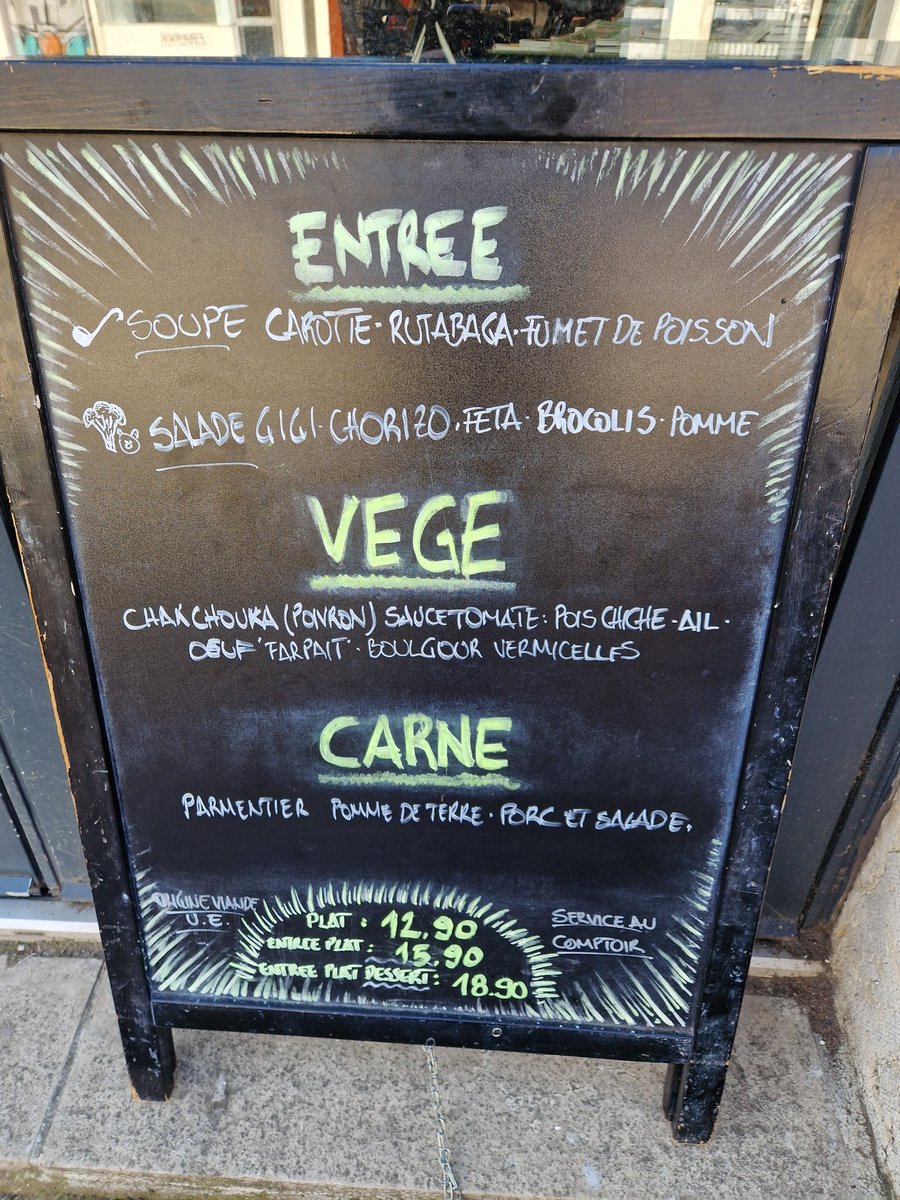 ENTREE
SOUPE CAROTTE · RUTABAGA · FUMET DE POISSON
SALADE GIGI · CHORIZO · FETA · BROCOLIS · POMME
VEGE
CHAKCHOUKA (POIVRON) SAUCE TOMATE · POIS CHICHE · AIL ·
OEUF 'FARPAIT' · BOULGOUR VERMICELLES
CARNE
PARMENTIER POMME DE TERRE · PORC ET SALADE.
ORIGINE VIANDE
U.E.
PLAT : 12,90
ENTREE PLAT : 15,90
ENTREE PLAT DESSERT : 18.90
SERVICE AU
COMPTOIR